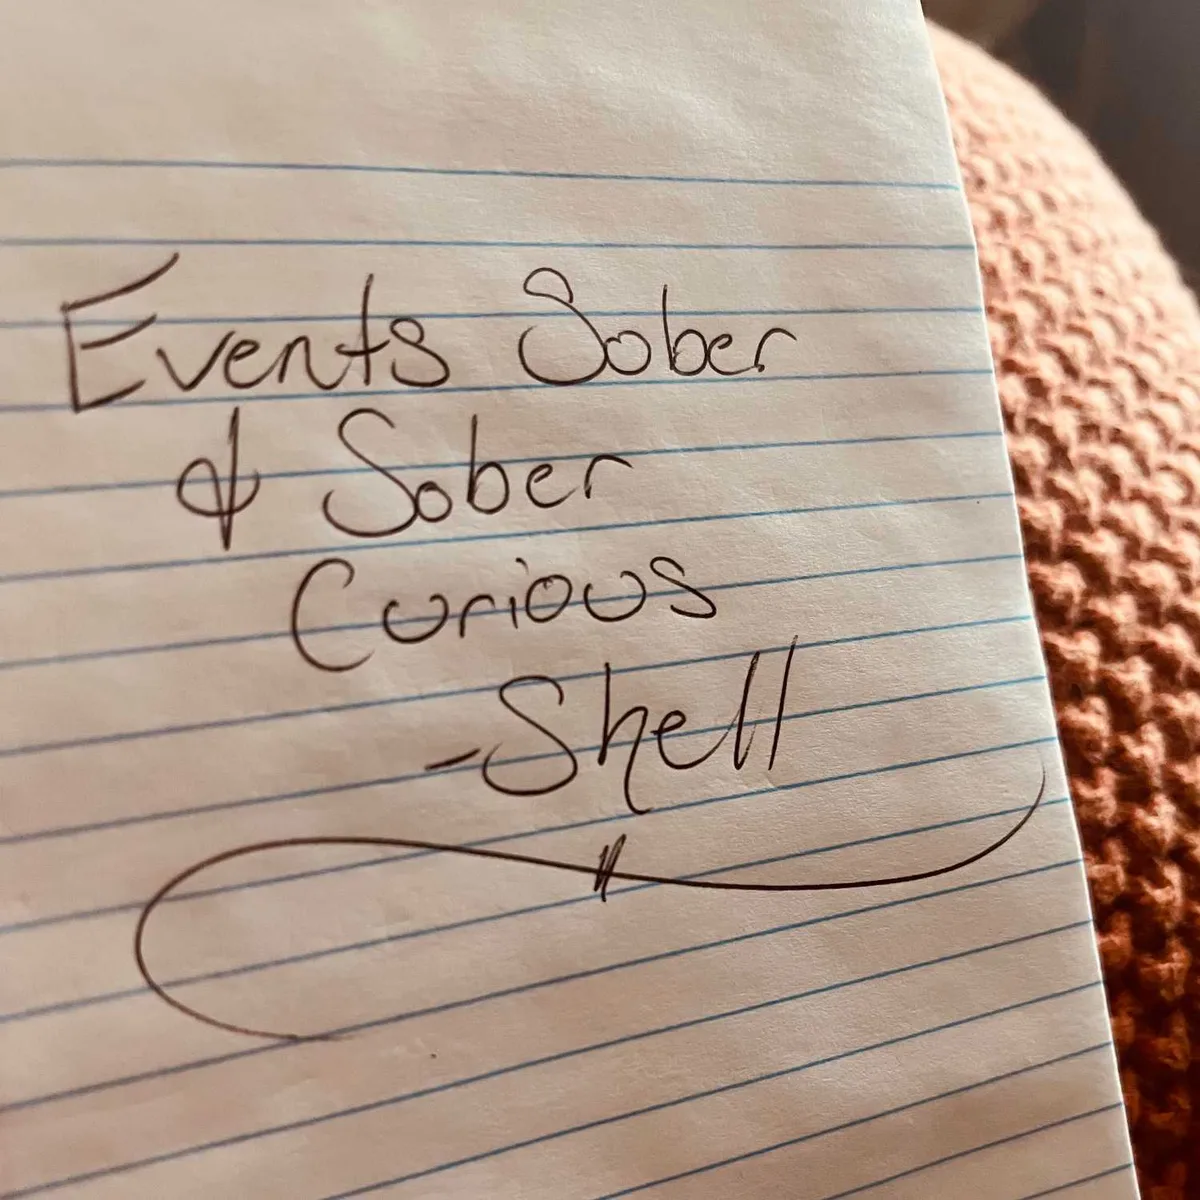 Events Sober
& Sober
Curious
-Shell